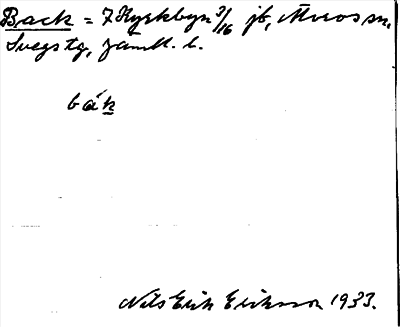 Back = 7 Kyrkbyn 3/16 jb, Älvros sn,
Svegs tg, Jämtl. l.
bák
Nils Erik Eriksson 1933.